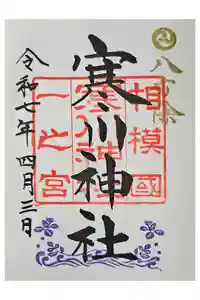 八方除
寒川神社
相模國
寒川神社
一之宮
令和七年四月三日